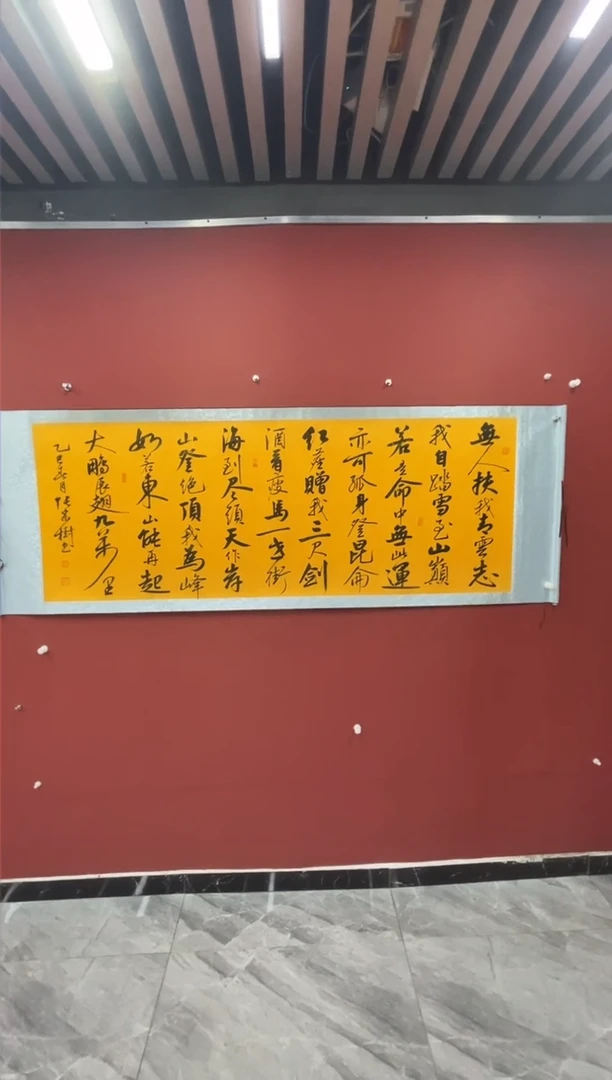 無人扶我青雲志
我自踏雪至山巔
若是命中無此運
亦可孤身登昆侖
红塵贈我三尺劍
酒瘦馬一
海到尽頭天作岸
山登絶頂我為峰
如若東山能再起
大鵬展翅九萬里
乙巳月樹书